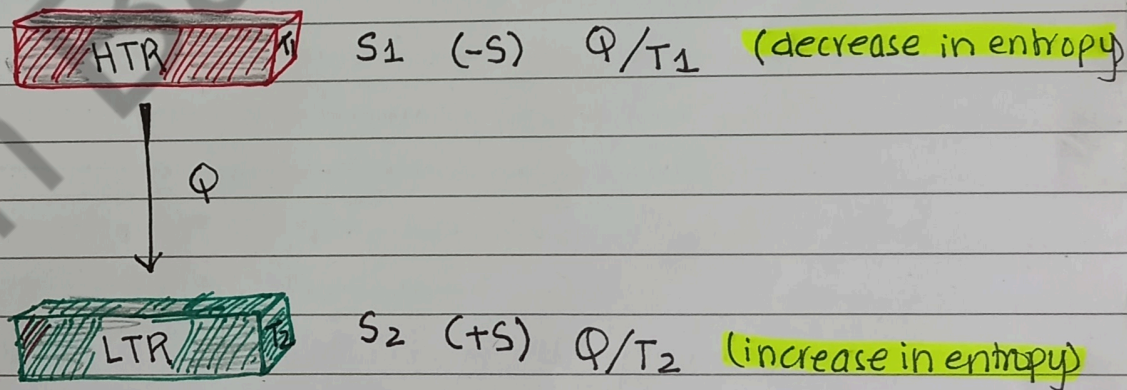 HTR T1 S1 (-S) Q/T1 (decrease in entropy
Q
LTR T2 S2 (+S) Q/T2 (increase in entropy)